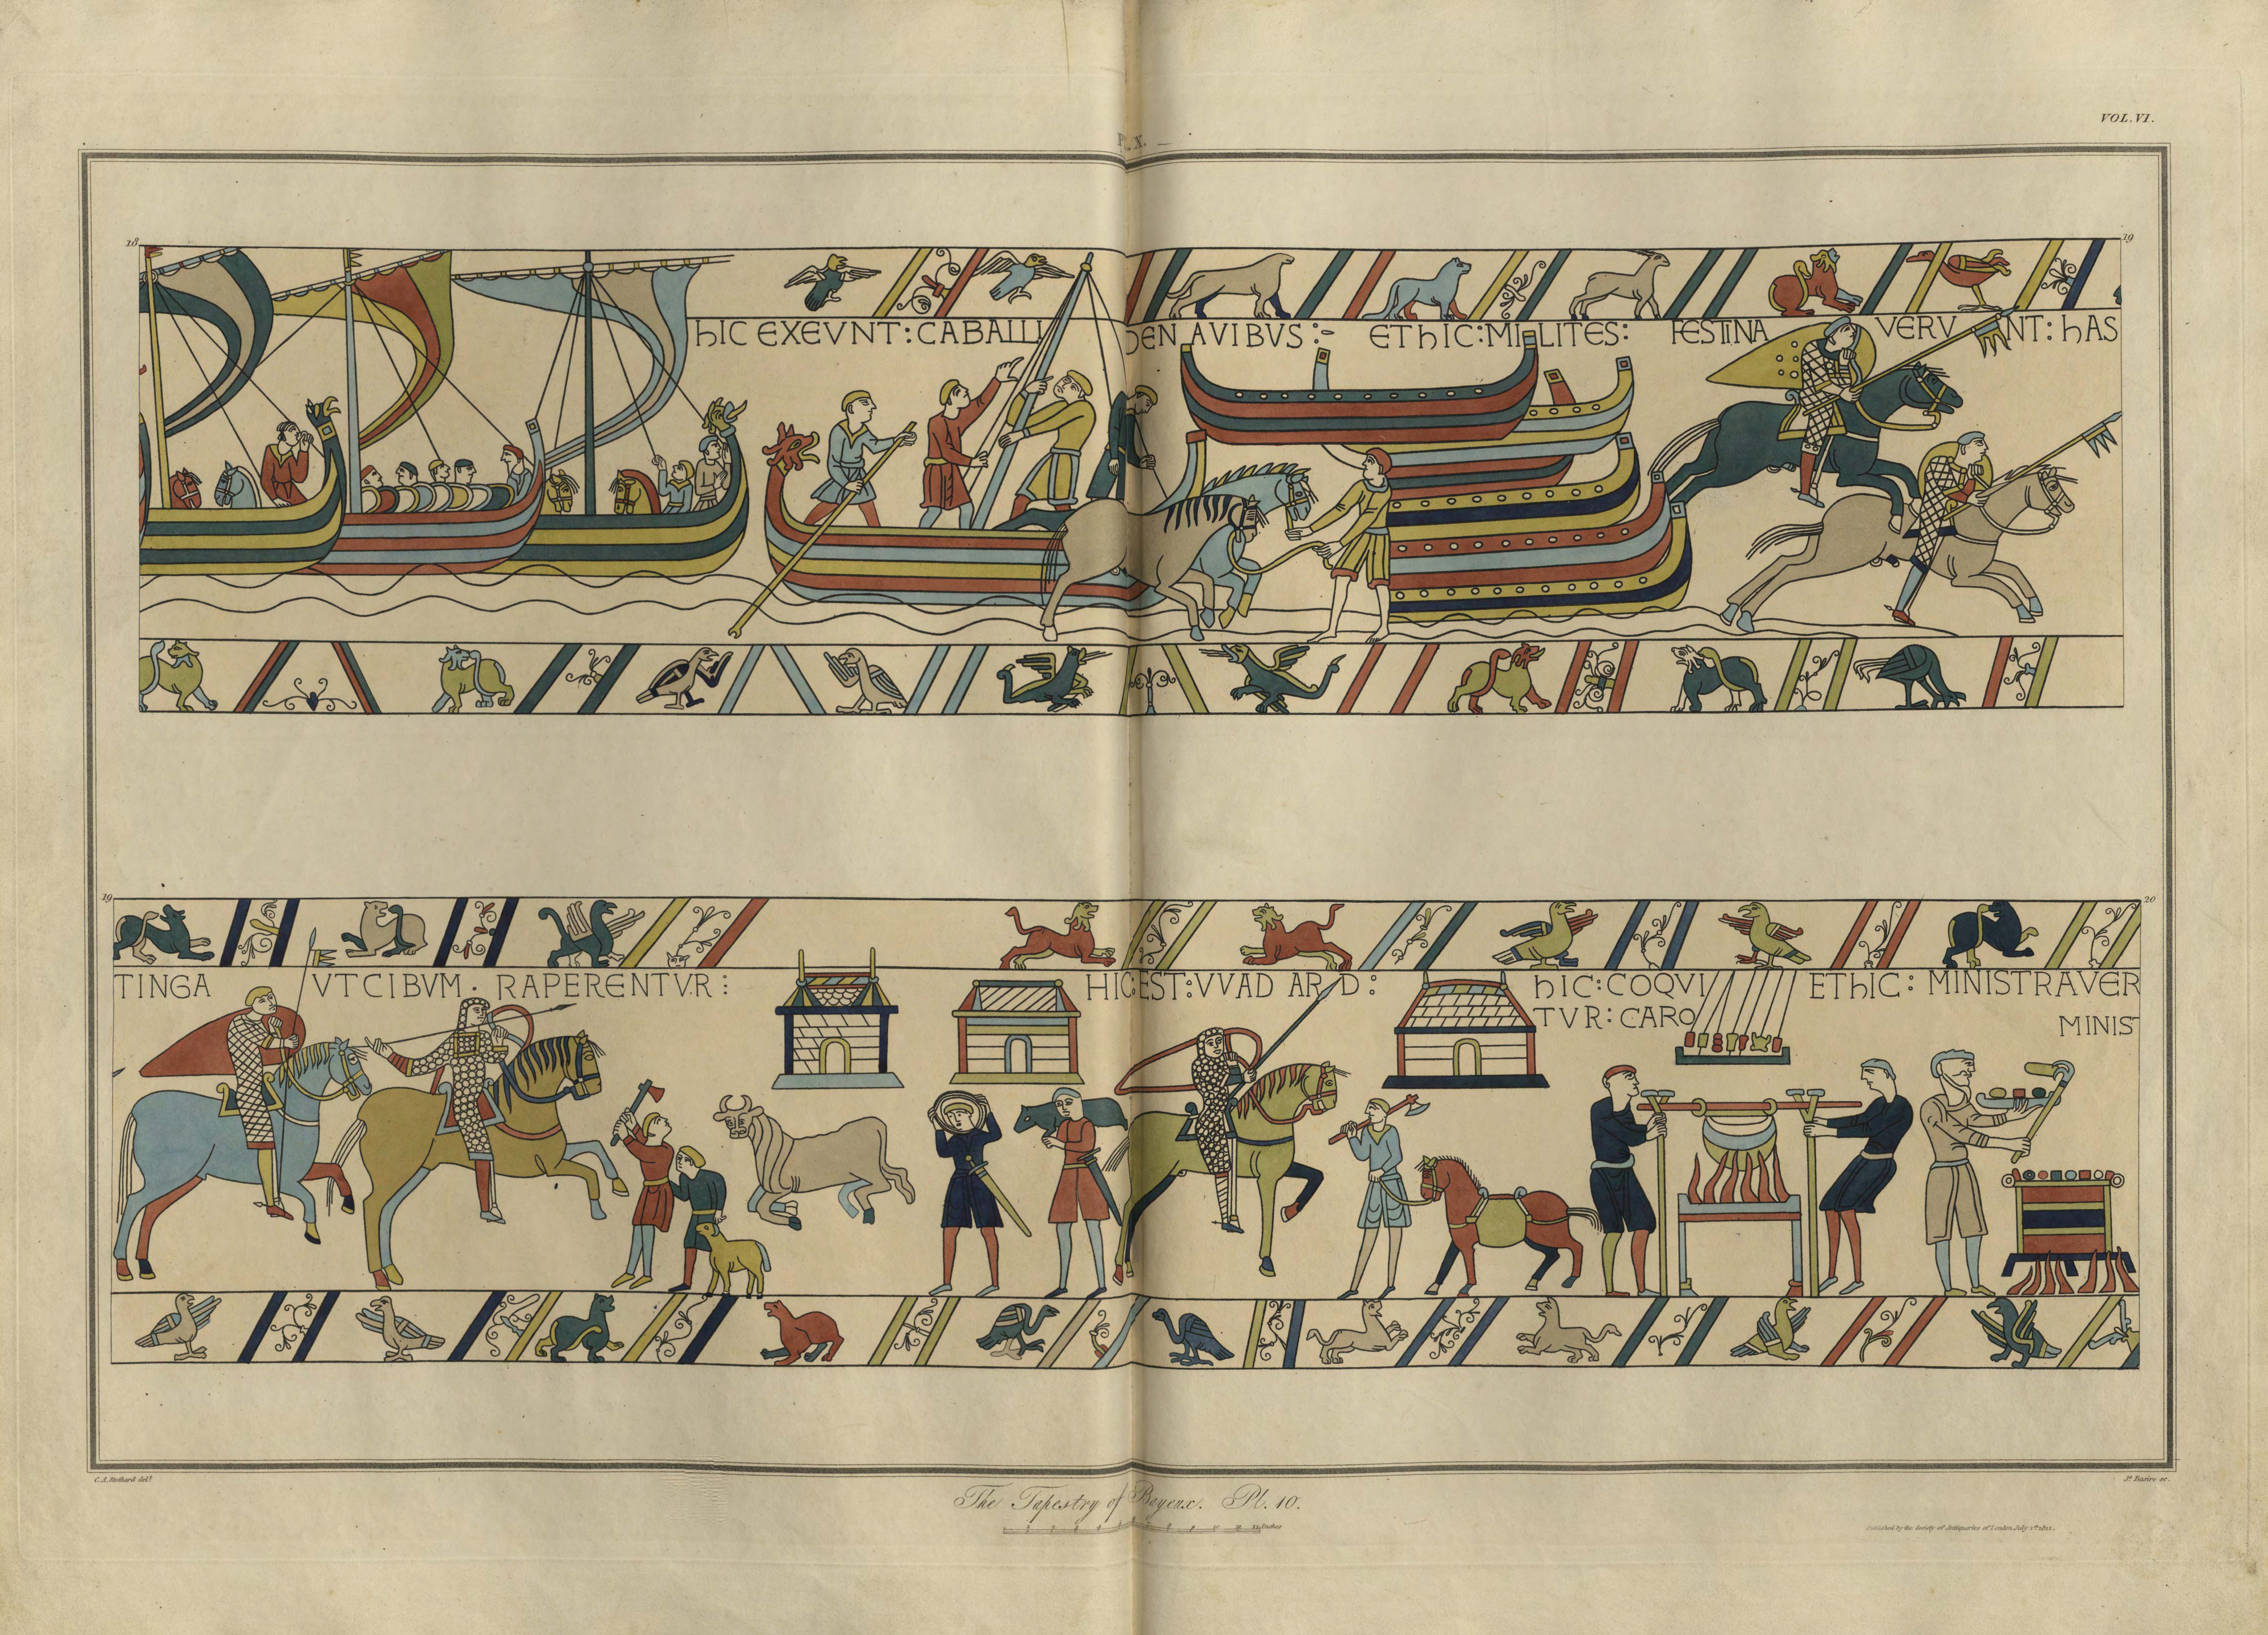 VOL. VI.
Pl. X.
18
19
hIC EXEVNT : CABALLI DE NAVIBVS :- ET hIC : MILITES : FESTINAVERVNT : hAS
19
20
TINGA VT CIBVM · RAPERENTVR :
HIC EST : VVADARD :
hIC : COQVI
TVR : CARO
ET hIC : MINISTRAVER
MINIS
C. A. Stothard delt.
Js. Basire sc.
The Tapestry of Bayeux. Pl. 10.
12 Inches
Published by the Society of Antiquaries of London, July 1st 1822.